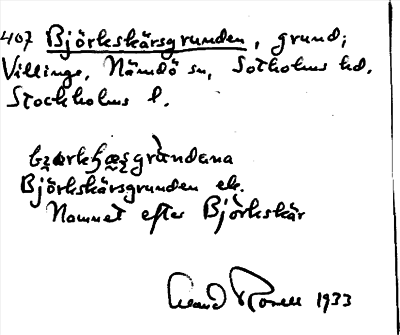 407 Björkskärsgrunden, grund;
Villinge, Nämdö sn, Sotholms hd.
Stockholms l.
grundena
Björkskärsgrunden ek.
Namnet efter Björkskär
1933